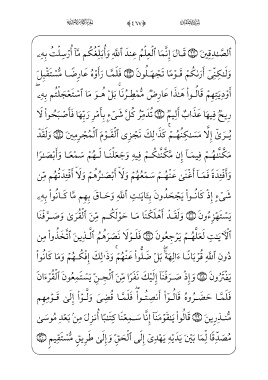 ٱلصَّٰدِقِينَ ۝ قَالَ إِنَّمَا ٱلْعِلْمُ عِندَ ٱللَّهِ وَأُبَلِّغُكُم مَّآ أُرْسِلْتُ بِهِۦ
وَلَٰكِنِّىٓ أَرَىٰكُمْ قَوْمًا تَجْهَلُونَ ۝ فَلَمَّا رَأَوْهُ عَارِضًا مُّسْتَقْبِلَ
أَوْدِيَتِهِمْ قَالُوا۟ هَٰذَا عَارِضٌ مُّمْطِرُنَا ۚ بَلْ هُوَ مَا ٱسْتَعْجَلْتُم بِهِۦ ۖ
رِيحٌ فِيهَا عَذَابٌ أَلِيمٌ ۝ تُدَمِّرُ كُلَّ شَىْءٍۭ بِأَمْرِ رَبِّهَا فَأَصْبَحُوا۟ لَا
يُرَىٰٓ إِلَّا مَسَٰكِنُهُمْ ۚ كَذَٰلِكَ نَجْزِى ٱلْقَوْمَ ٱلْمُجْرِمِينَ ۝ وَلَقَدْ
مَكَّنَّٰهُمْ فِيمَآ إِن مَّكَّنَّٰكُمْ فِيهِ وَجَعَلْنَا لَهُمْ سَمْعًا وَأَبْصَٰرًا
وَأَفْـِٔدَةً فَمَآ أَغْنَىٰ عَنْهُمْ سَمْعُهُمْ وَلَآ أَبْصَٰرُهُمْ وَلَآ أَفْـِٔدَتُهُم مِّن
شَىْءٍ إِذْ كَانُوا۟ يَجْحَدُونَ بِـَٔايَٰتِ ٱللَّهِ وَحَاقَ بِهِم مَّا كَانُوا۟ بِهِۦ
يَسْتَهْزِءُونَ ۝ وَلَقَدْ أَهْلَكْنَا مَا حَوْلَكُم مِّنَ ٱلْقُرَىٰ وَصَرَّفْنَا
ٱلْـَٔايَٰتِ لَعَلَّهُمْ يَرْجِعُونَ ۝ فَلَوْلَا نَصَرَهُمُ ٱلَّذِينَ ٱتَّخَذُوا۟ مِن
دُونِ ٱللَّهِ قُرْبَانًا ءَالِهَةًۢ ۖ بَلْ ضَلُّوا۟ عَنْهُمْ ۚ وَذَٰلِكَ إِفْكُهُمْ وَمَا كَانُوا۟
يَفْتَرُونَ ۝ وَإِذْ صَرَفْنَآ إِلَيْكَ نَفَرًا مِّنَ ٱلْجِنِّ يَسْتَمِعُونَ ٱلْقُرْءَانَ
فَلَمَّا حَضَرُوهُ قَالُوٓا۟ أَنصِتُوا۟ ۖ فَلَمَّا قُضِىَ وَلَّوْا۟ إِلَىٰ قَوْمِهِم
مُّنذِرِينَ ۝ قَالُوا۟ يَٰقَوْمَنَآ إِنَّا سَمِعْنَا كِتَٰبًا أُنزِلَ مِنۢ بَعْدِ مُوسَىٰ
مُصَدِّقًا لِّمَا بَيْنَ يَدَيْهِ يَهْدِىٓ إِلَى ٱلْحَقِّ وَإِلَىٰ طَرِيقٍ مُّسْتَقِيمٍ ۝